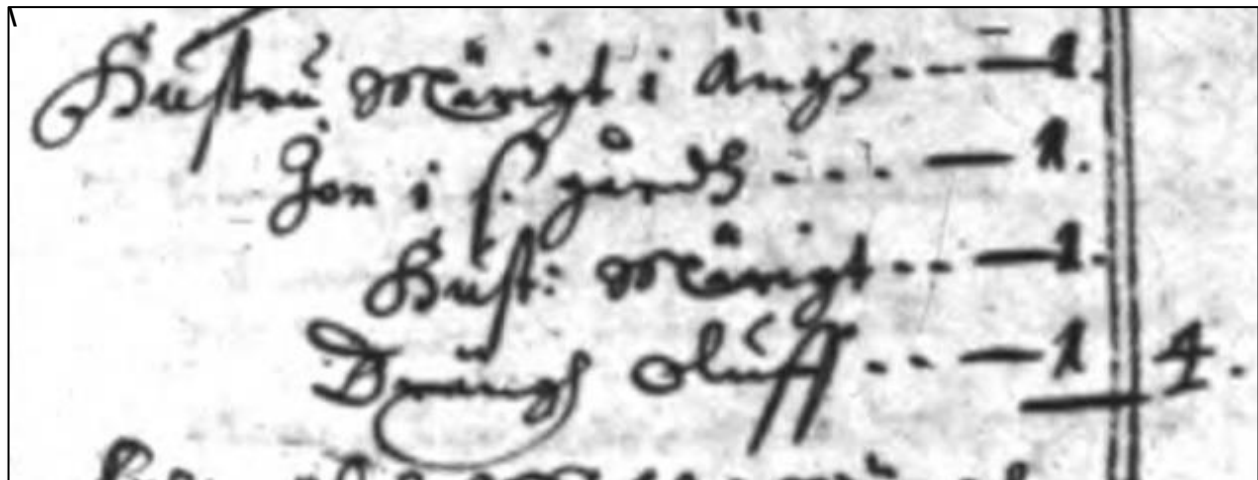 Hustru Märigt i Ängh --- — 1.
Jon i S. gårdh ---- — 1.
Hust: Märigt --- — 1.
Drängh Oluff --- — 1 4.